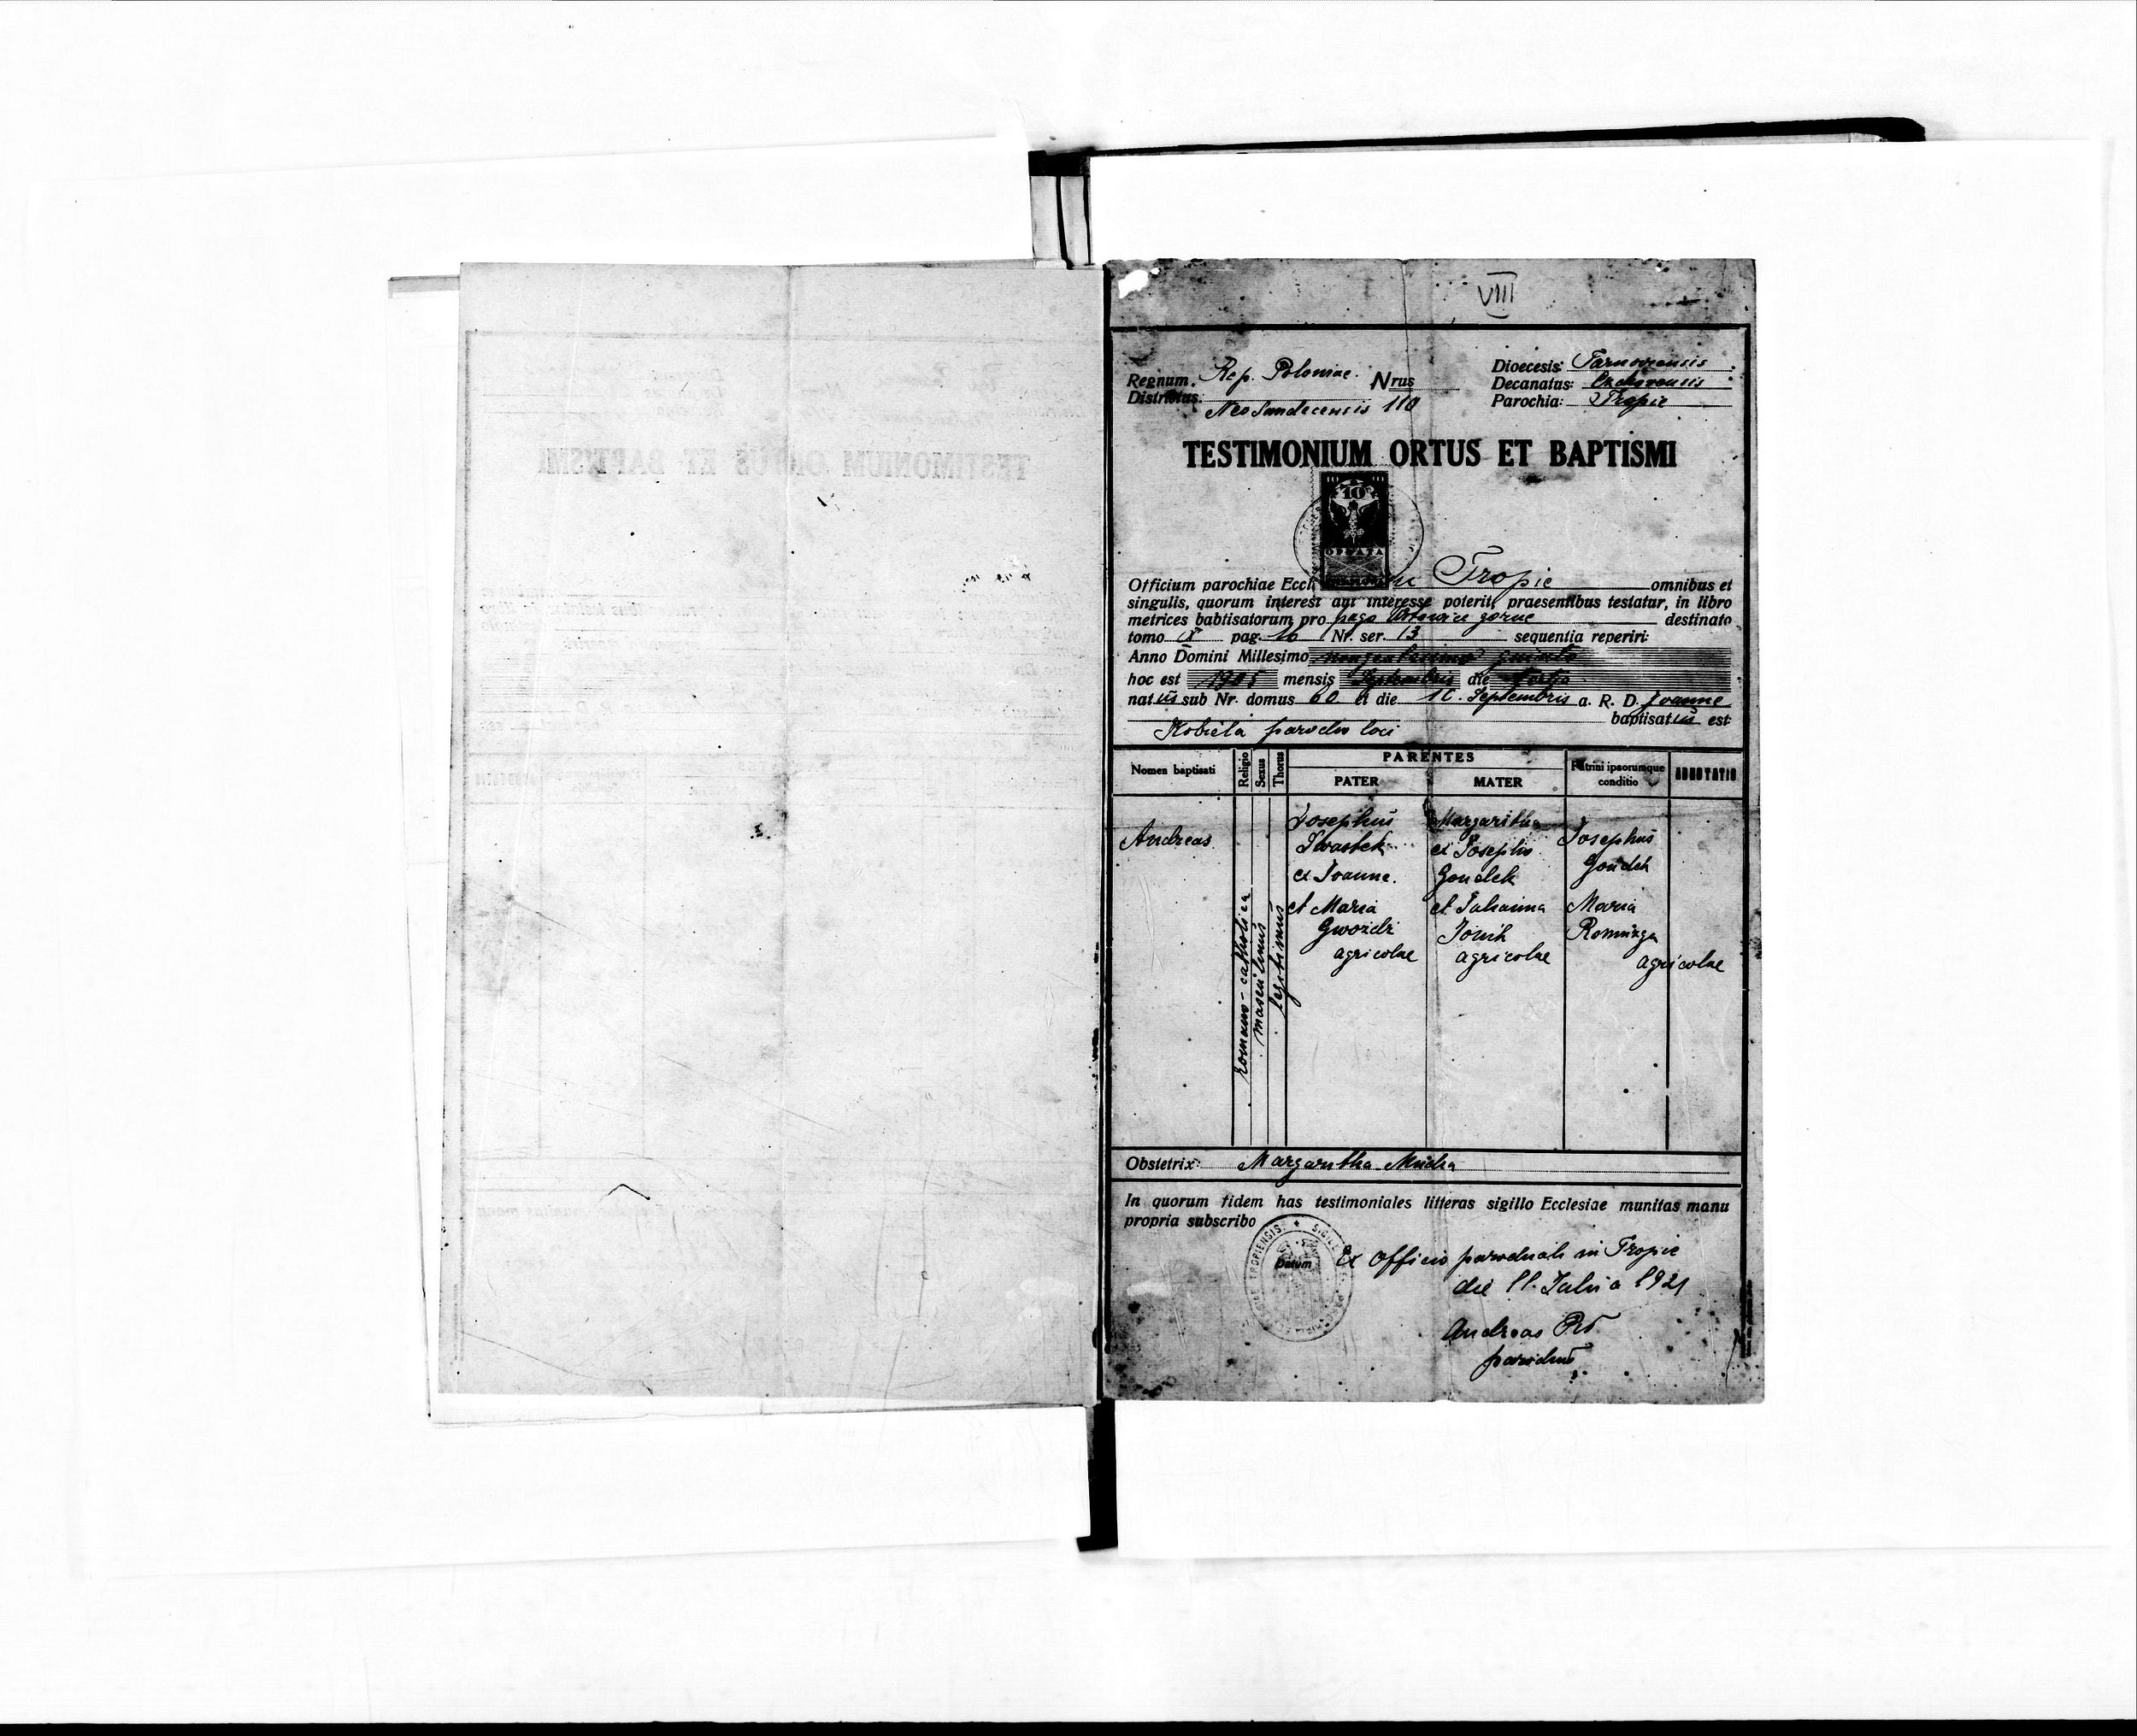 VIII
Regnum. Rep. Poloniae. Nrus Dioecesis: Tarnoviensis
Districtus. Neo Sandecensis 110 Decanatus:
Parochia: Tropie
TESTIMONIUM ORTUS ET BAPTISMI
10 10
10
OPŁATA
Officium parochiae Eccl in Tropie omnibus et
singulis, quorum interest aut interesse poterit, praesentibus testatur, in libro
metrices babtisatorum pro pago górne destinato
tomo pag. 16 Nr. ser. 13 sequentia reperiri:
Anno Domini Millesimo nongentesimo quinto
hoc est 1905 mensis Septembris die
natus sub Nr. domus 60 et die 10. Septembris a. R. D. Joanne
baptisatus est
Kobiela parocho loci
Nomen baptisati Religio Sexus Thorus PARENTES Patrini ipsorumque conditio ADNOTATIO
PATER MATER
Andreas
romano-catholica
masculinus
legitimus
Josephus
Iwastek
ex Joanne.
et Maria
Gwoździ
agricolae
Margaritha
ex Josepho
Gondek
et
agricolae
Josephus
Gondek
Maria
agricolae
Obstetrix: Margaritha Mucha
In quorum fidem has testimoniales litteras sigillo Ecclesiae munitas manu
propria subscribo
Datum Ex officio parochiali in Tropie
die 11. Julii a 1921
Andreas
parochus